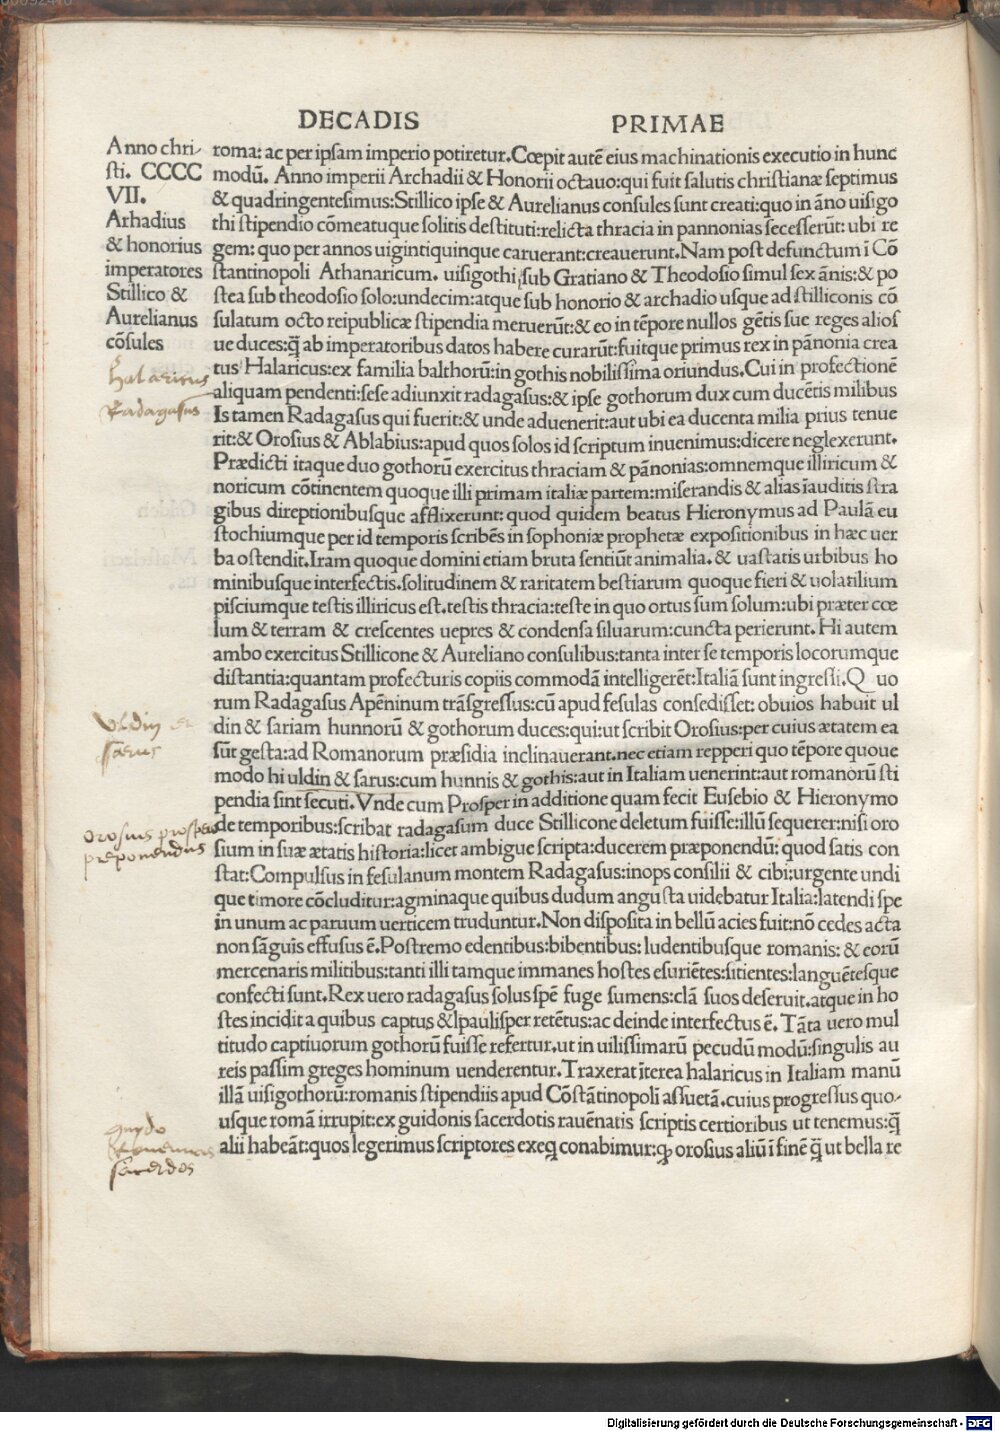 DECADIS PRIMAE
Anno chri-
sti. CCCC
VII.
Arhadius
& honorius
imperatores
Stillico &
Aurelianus
cõsules
halaricus
Radagasus
Uldin et
sarus
orosius prospero
preponendus
guydo
Ravennas
sacerdos
roma: ac per ipsam imperio potiretur. Cœpit autẽ eius machinationis executio in hunc
modũ. Anno imperii Archadii & Honorii octauo: qui fuit salutis christianæ septimus
& quadringentesimus: Stillico ipse & Aurelianus consules sunt creati: quo in ãno uisigo
thi stipendio cõmeatuque solitis destituti: relicta thracia in pannonias secesserũt: ubi re
gem: quo per annos uigintiquinque caruerant: creauerunt. Nam post defunctum ĩ Cõ
stantinopoli Athanaricum. uisigothi sub Gratiano & Theodosio simul sex ãnis: & po
stea sub theodosio solo: undecim: atque sub honorio & archadio usque ad stilliconis cõ
sulatum octo reipublicæ stipendia meruerũt: & eo in tẽpore nullos gẽtis sue reges alios
ue duces: q̃ ab imperatoribus datos habere curarũt: fuitque primus rex in pãnonia crea
tus Halaricus: ex familia balthorũ: in gothis nobilissima oriundus. Cui in profectionẽ
aliquam pendenti: sese adiunxit radagasus: & ipse gothorum dux cum ducẽtis milibus
Is tamen Radagasus qui fuerit: & unde aduenerit: aut ubi ea ducenta milia prius tenue
rit: & Orosius & Ablabius: apud quos solos id scriptum inuenimus: dicere neglexerunt.
Prædicti itaque duo gothorũ exercitus thraciam & pãnonias: omnemque illiricum &
noricum cõtinentem quoque illi primam italiæ partem: miserandis & alias ĩauditis stra
gibus direptionibusque afflixerunt: quod quidem beatus Hieronymus ad Paulã eu
stochiumque per id temporis scribẽs in sophoniæ prophetæ expositionibus in hæc uer
ba ostendit. Iram quoque domini etiam bruta sentiũt animalia. & uastatis urbibus ho
minibusque interfectis. solitudinem & raritatem bestiarum quoque fieri & uolatilium
pisciumque testis illiricus est. testis thracia: teste in quo ortus sum solum: ubi præter cœ
lum & terram & crescentes uepres & condensa siluarum: cuncta perierunt. Hi autem
ambo exercitus Stillicone & Aureliano consulibus: tanta inter se temporis locorumque
distantia: quantam profecturis copiis commodã intelligerẽt: Italiã sunt ingressi. Q uo
rum Radagasus Apẽninum trãsgressus: cũ apud fesulas consedisset: obuios habuit ul
din & sariam hunnorũ & gothorum duces: qui: ut scribit Orosius: per cuius ætatem ea
sũt gesta: ad Romanorum præsidia inclinauerant. nec etiam repperi quo tẽpore quoue
modo hi uldin & sarus: cum hunnis & gothis: aut in Italiam uenerint: aut romanorũ sti
pendia sint secuti. Vnde cum Prosper in additione quam fecit Eusebio & Hieronymo
de temporibus: scribat radagasum duce Stillicone deletum fuisse: illũ sequerer: nisi oro
sium in suæ ætatis historia: licet ambigue scripta: ducerem præponendũ: quod satis con
stat: Compulsus in fesulanum montem Radagasus: inops consilii & cibi: urgente undi
que timore cõcluditur: agminaque quibus dudum angusta uidebatur Italia: latendi spe
in unum ac paruum uerticem truduntur. Non disposita in bellũ acies fuit: nõ cedes acta
non sãguis effusus ẽ. Postremo edentibus: bibentibus: ludentibusque romanis: & eorũ
mercenaris militibus: tanti illi tamque immanes hostes esuriẽtes: sitientes: languẽtesque
confecti sunt. Rex uero radagasus solus spẽ fuge sumens: clã suos deseruit. atque in ho
stes incidit a quibus captus &lpaulisper retẽtus: ac deinde interfectus ẽ. Tãta uero mul
titudo captiuorum gothorũ fuisse refertur. ut in uilissimarũ pecudũ modũ: singulis au
reis passim greges hominum uenderentur. Traxerat ĩterea halaricus in Italiam manũ
illã uisigothorũ: romanis stipendiis apud Cõstãtinopoli assuetã. cuius progressus quo-
usque romã irrupit: ex guidonis sacerdotis rauẽnatis scriptis certioribus ut tenemus: q̃
alii habeãt: quos legerimus scriptores exeq̃ conabimur: ꝙ orosius aliũ ĩ finẽ q̃ ut bella re